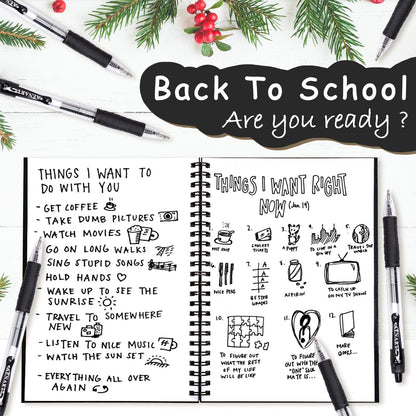 Back To School
Are you ready ?
THINGS I WANT TO
DO WITH YOU
- GET COFFEE
- TAKE DUMB PICTURES
- WATCH MOVIES
- GO ON LONG WALKS
- SING STUPID SONGS
- HOLD HANDS
- WAKE UP TO SEE THE
SUNRISE
- TRAVEL TO SOMEWHERE
NEW
- LISTEN TO NICE MUSIC
- WATCH THE SUN SET
- EVERYTHING ALL OVER
AGAIN
THINGS I WANT RIGHT
NOW (Jan. 19)
1.
2.
3.
4.
5.
HOT CUP
CONCERT
TICKETS
A PUPPY
TO LIVE IN A
BIG CITY
TRAVEL THE
WORLD
6.
7.
8.
9.
NICE PENS
BETTER
GRADES
ASPIRIN
TO CATCH UP
ON MY TV SHOWS
10.
11.
12.
TO FIGURE
OUT WHAT THE REST
OF MY LIFE
WILL BE LIKE
TO FIGURE
OUT WITH THE
"ONE" SOUL
MATE IS...
MORE
GOALS...